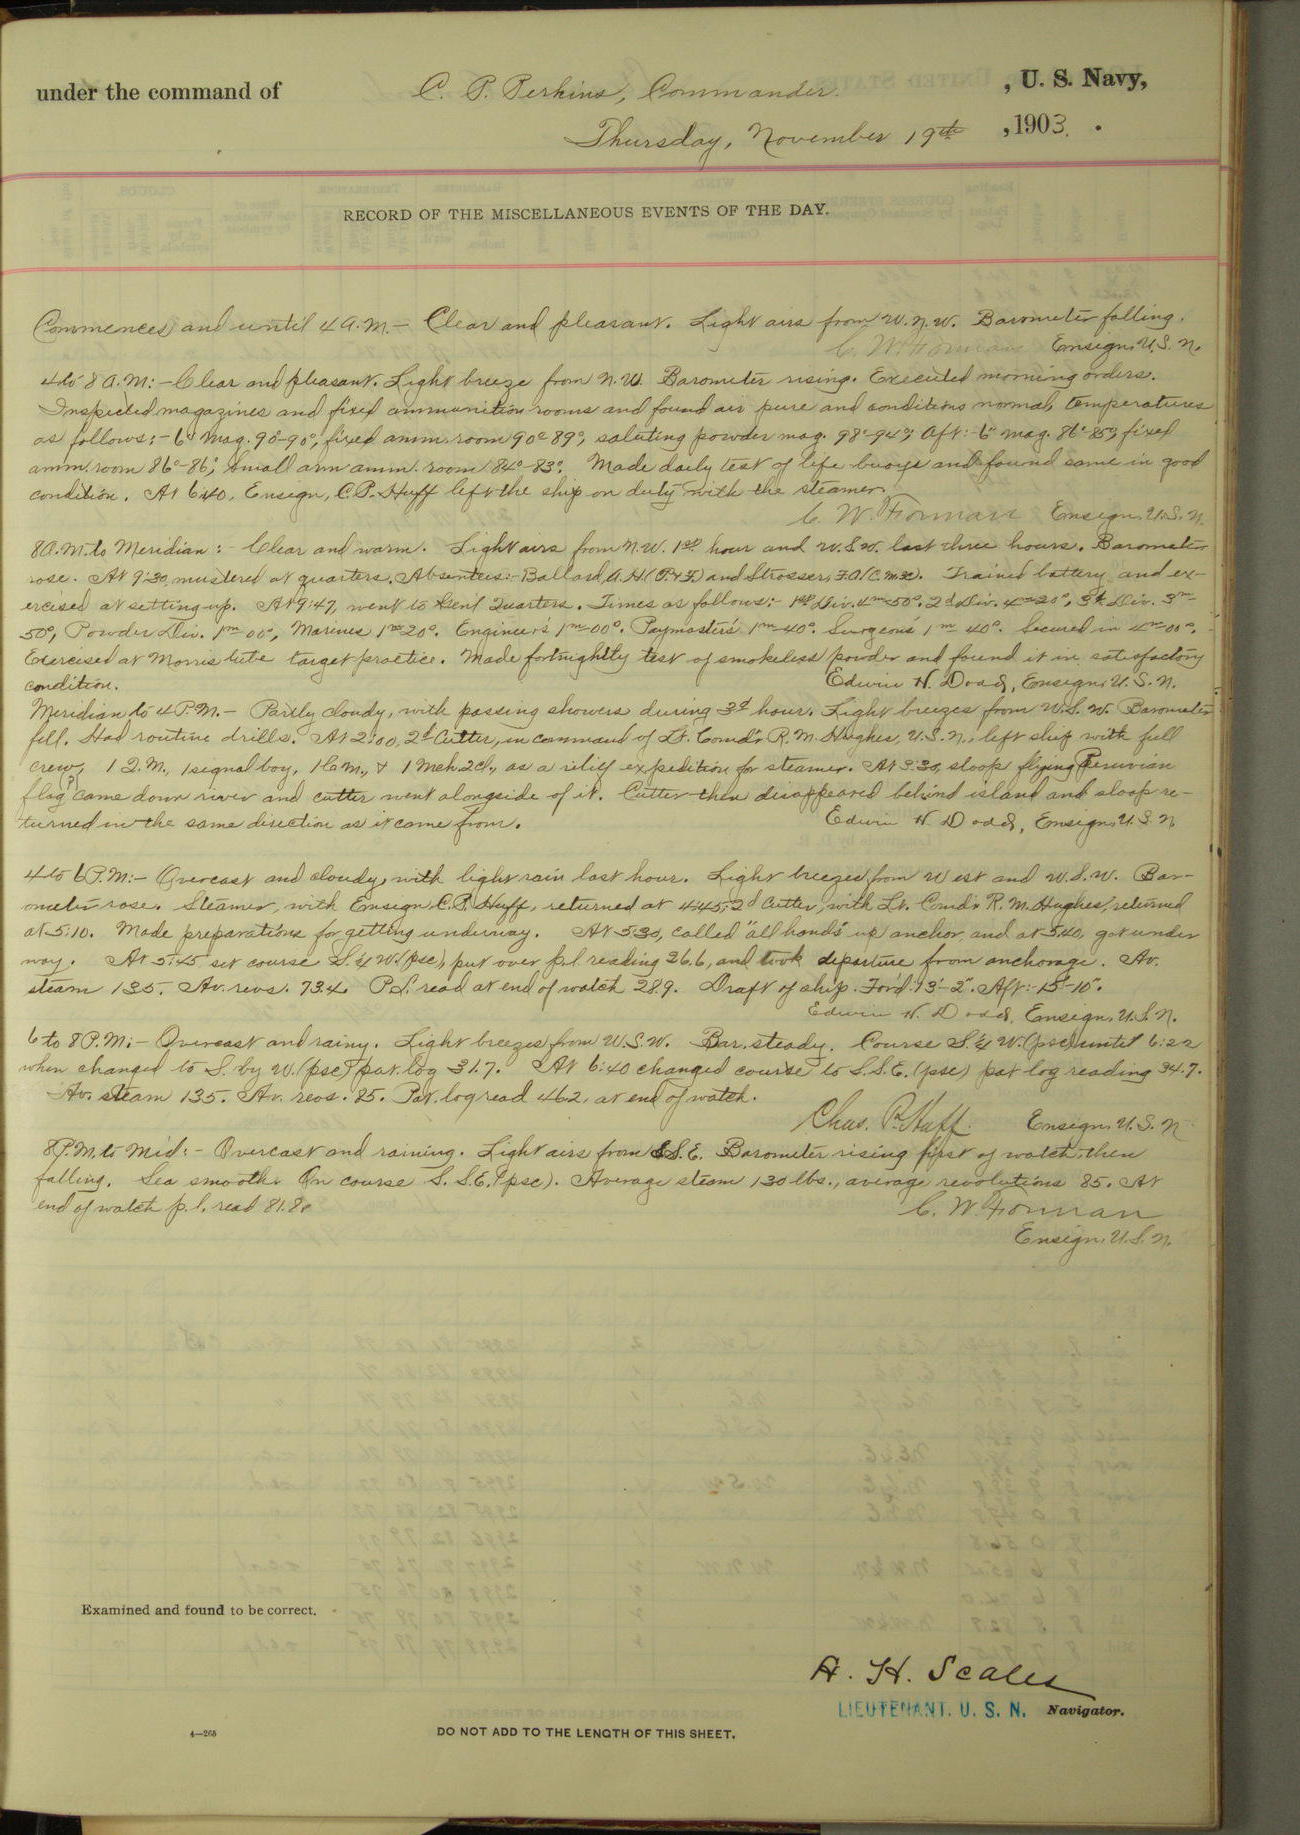 under the command of C. P. Perkins, Commander. , U. S. Navy,
Thursday, November 19th , 1903.
RECORD OF THE MISCELLANEOUS EVENTS OF THE DAY.
Commences and until 4 A.M.— Clear and pleasant. Light airs from W.N.W. Barometer falling.
C. W. Forman Ensign, U.S.N.
4 to 8 A.M:— Clear and pleasant. Light breeze from N.W. Barometer rising. Executed morning orders.
Inspected magazines and fixed ammunition rooms and found air pure and conditions normal, temperatures
as follows:- 6" Mag. 90°-90°, fixed amm. room 90°-89°, saluting powder mag. 98°-94°; Aft:- 6" mag. 86°-85°, fixed
amm. room 86°-86°, Small arm amm. room 84°-83°. Made daily test of life buoys and found same in good
condition. At 6:40, Ensign, C.P. Huff left the ship on duty with the steamer.
C. W. Forman Ensign, U.S.N.
8 A.M. to Meridian:- Clear and warm. Light airs from N.W. 1st hour and W.S.W. last three hours. Barometer
rose. At 9:30, mustered at quarters. Absentees:- Ballard, A.H. (P.&F.) and Strosser, F.A. Trained battery and ex-
ercised at setting-up. At 9:47, went to Gen'l Quarters. Times as follows:- 1st Div. 4m-50s. 2d Div. 4m-20s, 3d Div. 3m-
50s, Powder Div. 1m 00s, Marines 1m 20s. Engineer's 1m-00s. Paymaster's 1m-40s. Surgeon's 1m 40s. Secured in 4m-00s.
Exercised at Morris tube target practice. Made fortnightly test of smokeless powder and found it in satisfactory
condition. Edwin H. Dodd, Ensign, U.S.N.
Meridian to 4 P.M.— Partly cloudy, with passing showers during 3d hour. Light breezes from W.S.W. Barometer
fell. Had routine drills. At 2:00, 2d Cutter, in command of Lt. Comd'r R.M. Hughes, U.S.N., left ship with full
crew, 1 Q.M., 1 signal boy, 1 & 1 Mch. 2cl., as a relief expedition for steamer. At 3:30, sloop flying Peruvian
flag came down river and cutter went alongside of it. Cutter then disappeared behind island and sloop re-
turned in the same direction as it came from. Edwin H. Dodd, Ensign, U.S.N.
4 to 6 P.M:— Overcast and cloudy, with light rain last hour. Light breezes from West and W.S.W. Bar-
ometer rose. Steamer, with Ensign C.P. Huff, returned at 4:45; 2d Cutter, with Lt. Comd'r R.M. Hughes, returned
at 5:10. Made preparations for getting underway. At 5:30, called "all hands" up anchor, and at 5:40, got under
way. At 5:45 set course S.¼W. (psc), put over p.l. reading 26.6, and took departure from anchorage. Av.
steam 135. Av. revs. 73.4. P.L. read at end of watch 28.9. Draft of ship. For'd: 13'-2". Aft:- 15'-10".
Edwin H. Dodd, Ensign, U.S.N.
6 to 8 P.M:— Overcast and rainy. Light breezes from W.S.W. Bar. steady. Course S.¼W. (psc) until 6:22
when changed to S. by W. (psc) pat. log 31.7. At 6:40 changed course to S.S.E. (psc) pat log reading 34.7.
Av. steam 135. Av. revs. 85. Pat. log read 46.2, at end of watch.
Chas. P. Huff. Ensign, U.S.N.
8 P.M. to Mid:- Overcast and raining. Light airs from S.E. Barometer rising first of watch, then
falling. Sea smooth. On course S.S.E. (psc). Average steam 130 lbs., average revolutions 85. At
end of watch p.l. read 81.8.
C. W. Forman
Ensign, U.S.N.
Examined and found to be correct.
A. H. Scales
LIEUTENANT. U. S. N. Navigator.
4—265
DO NOT ADD TO THE LENGTH OF THIS SHEET.